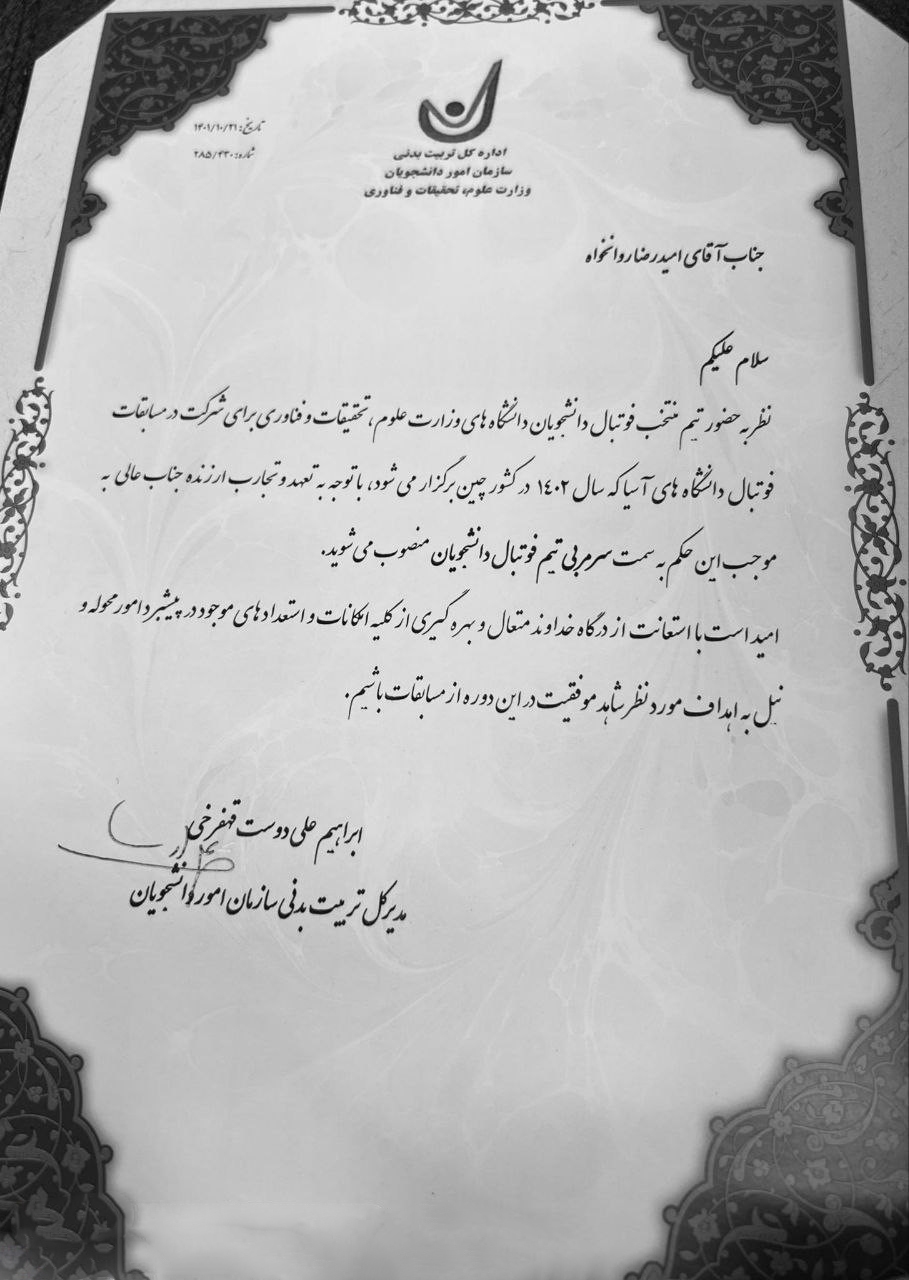 تاریخ: ۱۴۰۱/۱۰/۲۱
شماره: ۲۸۵/۴۳۰
اداره کل تربیت بدنی
سازمان امور دانشجویان
وزارت علوم، تحقیقات و فناوری
جناب آقای امیدرضا روانخواه
سلام علیکم
نظر به حضور تیم منتخب فوتبال دانشجویان دانشگاه های وزارت علوم، تحقیقات و فناوری برای شرکت در مسابقات
فوتبال دانشگاه های آسیا که سال ۱۴۰۲ در کشور چین برگزار می شود، با توجه به تعهد و تجارب ارزنده جناب عالی به
موجب این حکم به سمت سرمربی تیم فوتبال دانشجویان منصوب می شوید.
امید است با استعانت از درگاه خداوند متعال و بهره گیری از کلیه امکانات و استعدادهای موجود در پیشبرد امور محوله و
نیل به اهداف مورد نظر شاهد موفقیت در این دوره از مسابقات باشیم.
ابراهیم علی دوست قهفرخی
مدیرکل تربیت بدنی سازمان امور دانشجویان